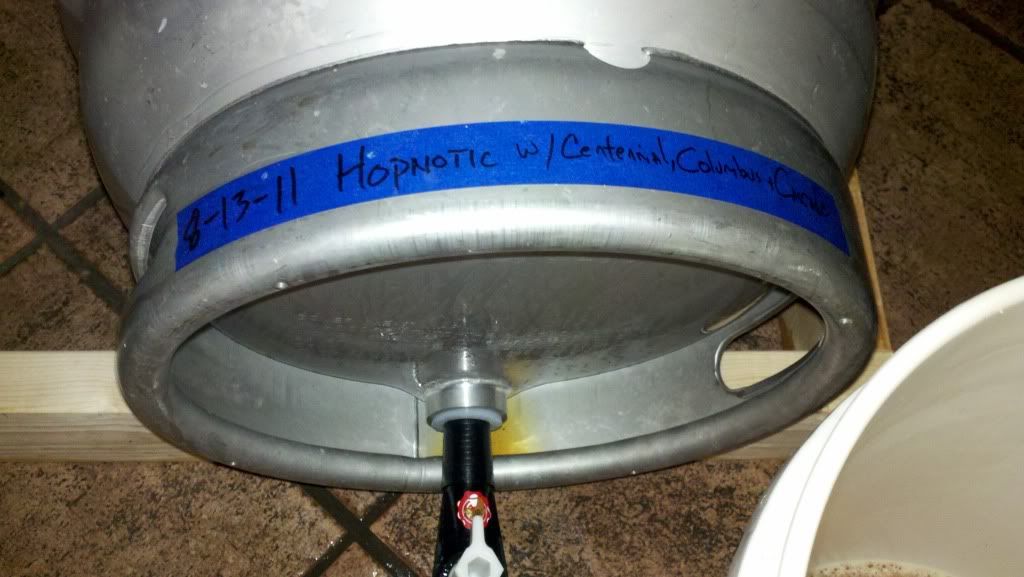 8-13-11 HOPNOTIC w/ Centennial, Columbus +